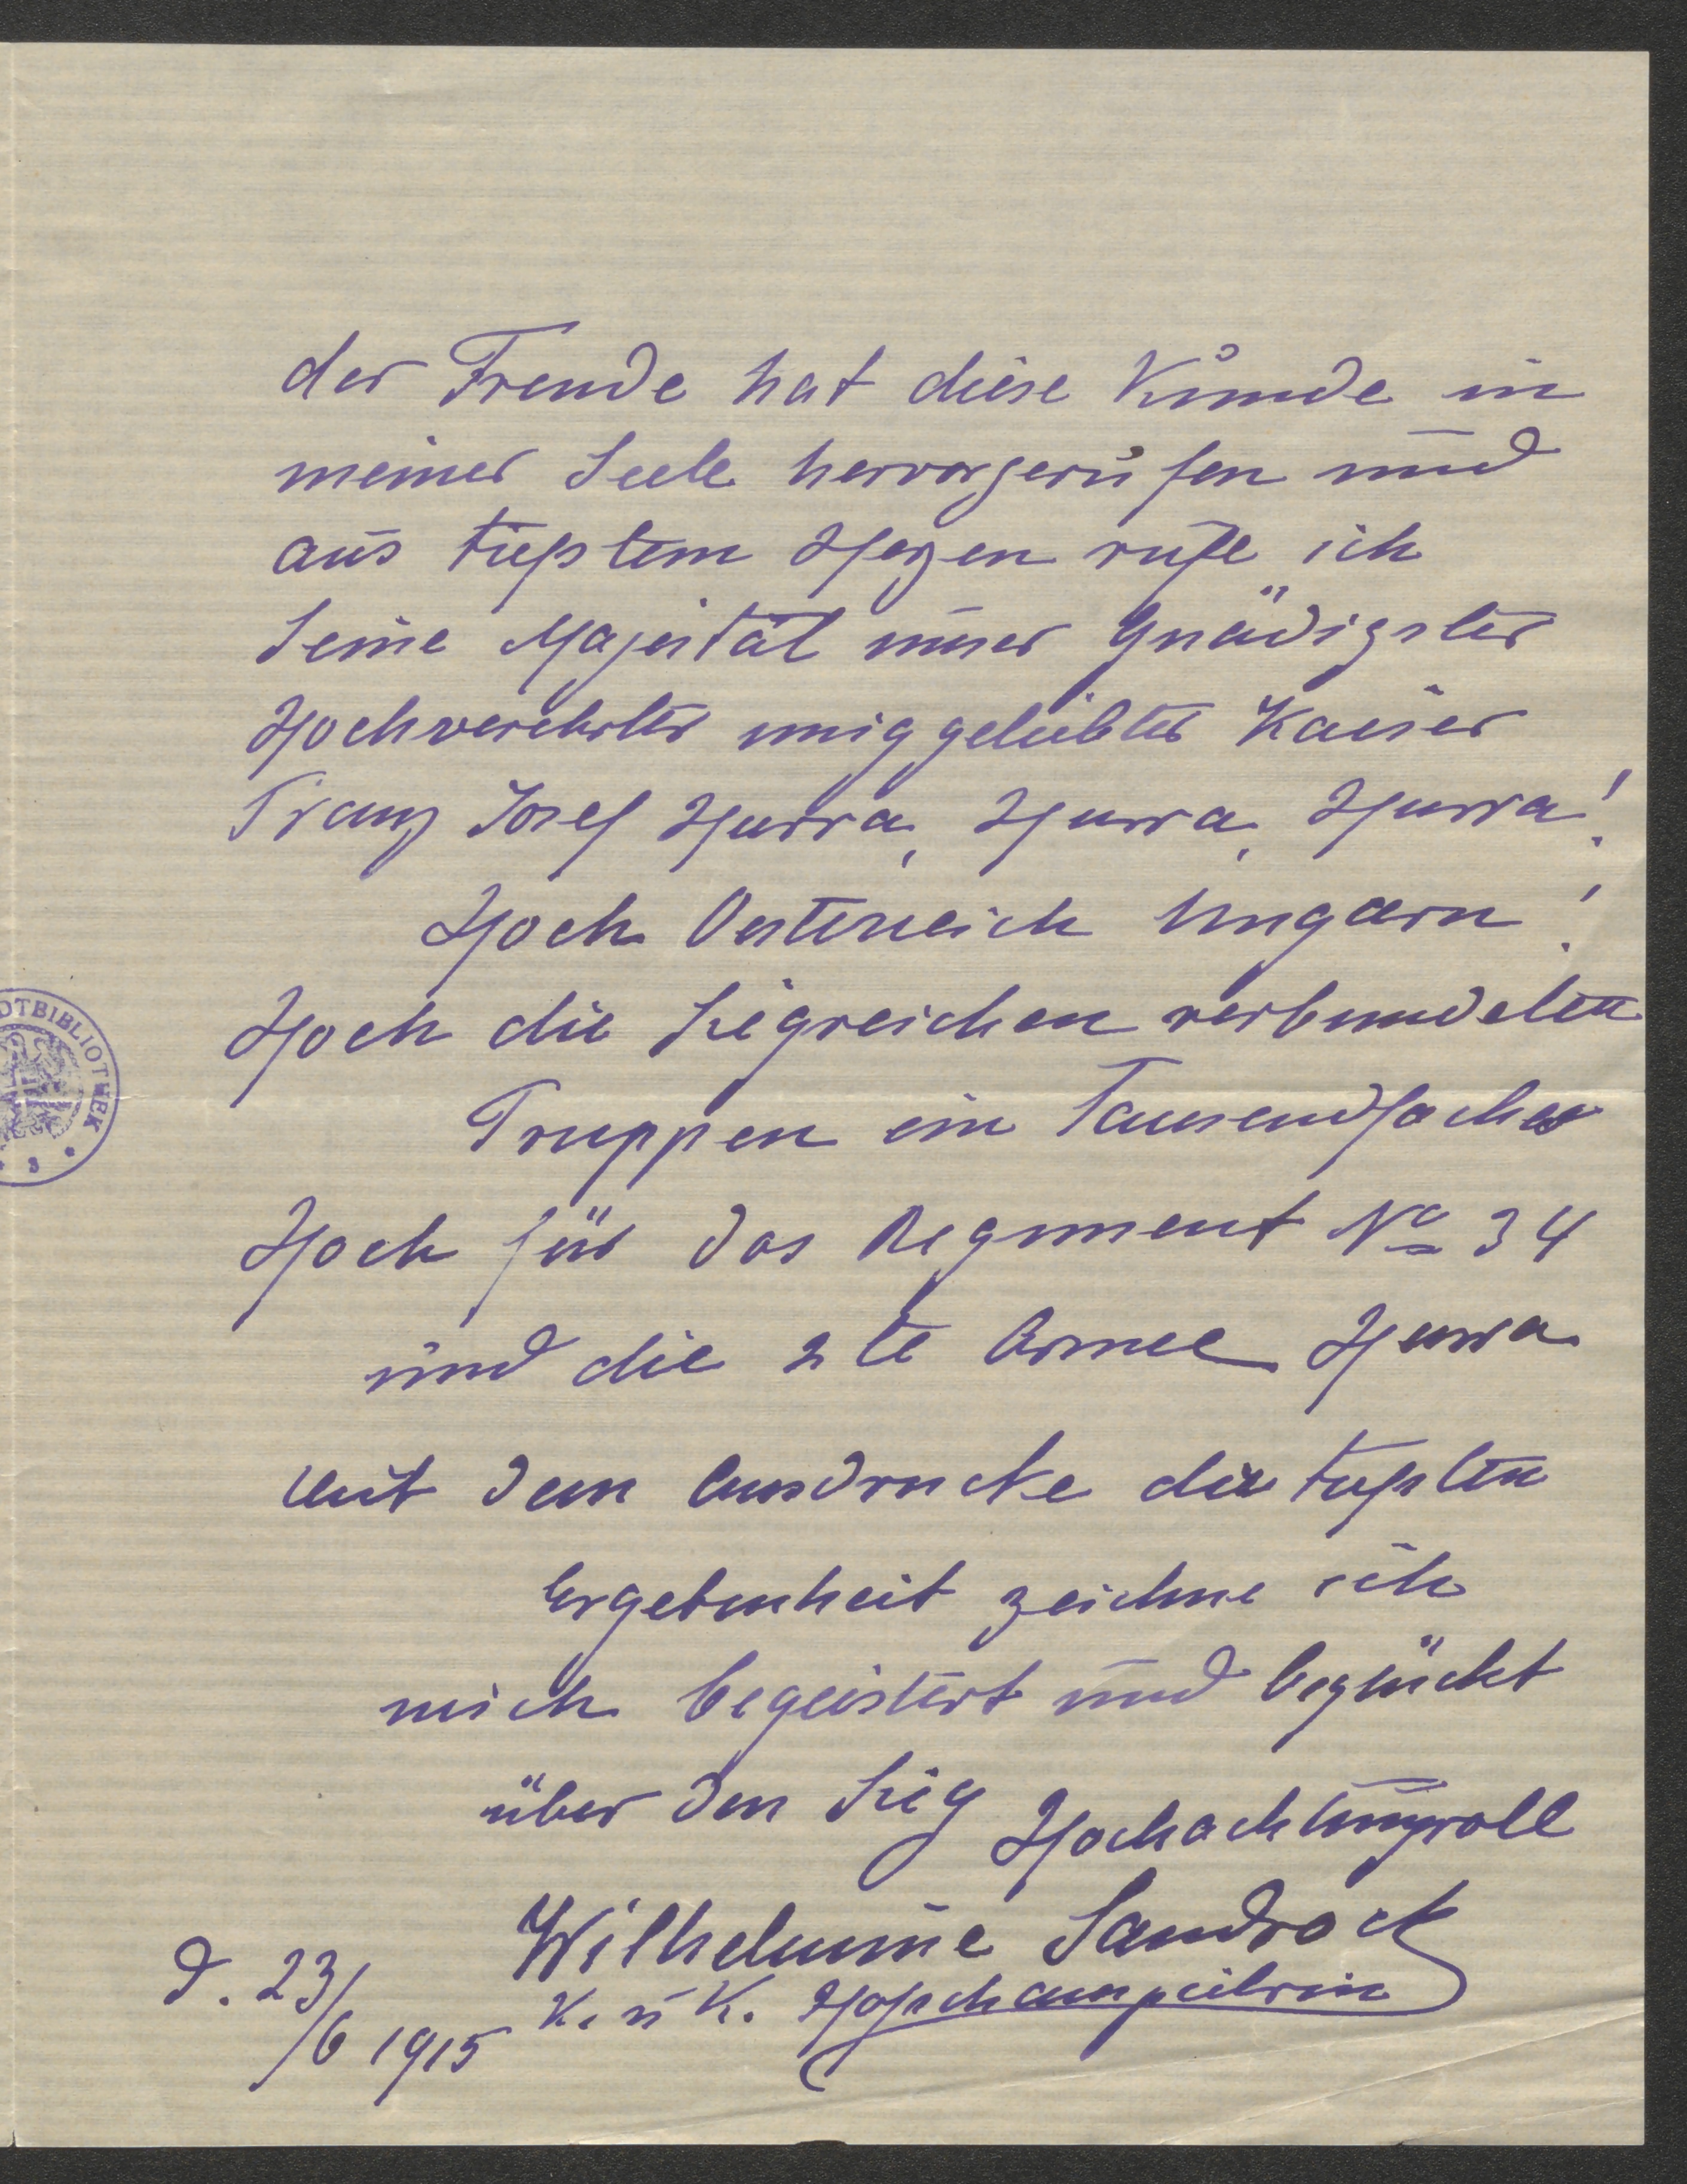 der Freude hat diese Kunde in
meiner Seele hervorgerufen und
aus tiefstem Herzen rufe ich
Seine Majestät unser Gnädigster
Hochverehrter innig geliebter Kaiser
Franz Josef Hurra, Hurra, Hurra!
Hoch Oesterreich Ungarn!
Hoch die Siegreichen verbundeten
Truppen ein Tausendfaches
Hoch für das Regiment No 34
und die 2te Armee Hurra
Mit dem Ausdrucke der tiefsten
Ergebenheit zeichne ich
mich begeistert und beglückt
über den Sieg Hochachtungsvoll
Wilhelmine Sandrock
K. u K. Hofschauspielerin
d. 23/6 1915
DTBIBLIOTHEK